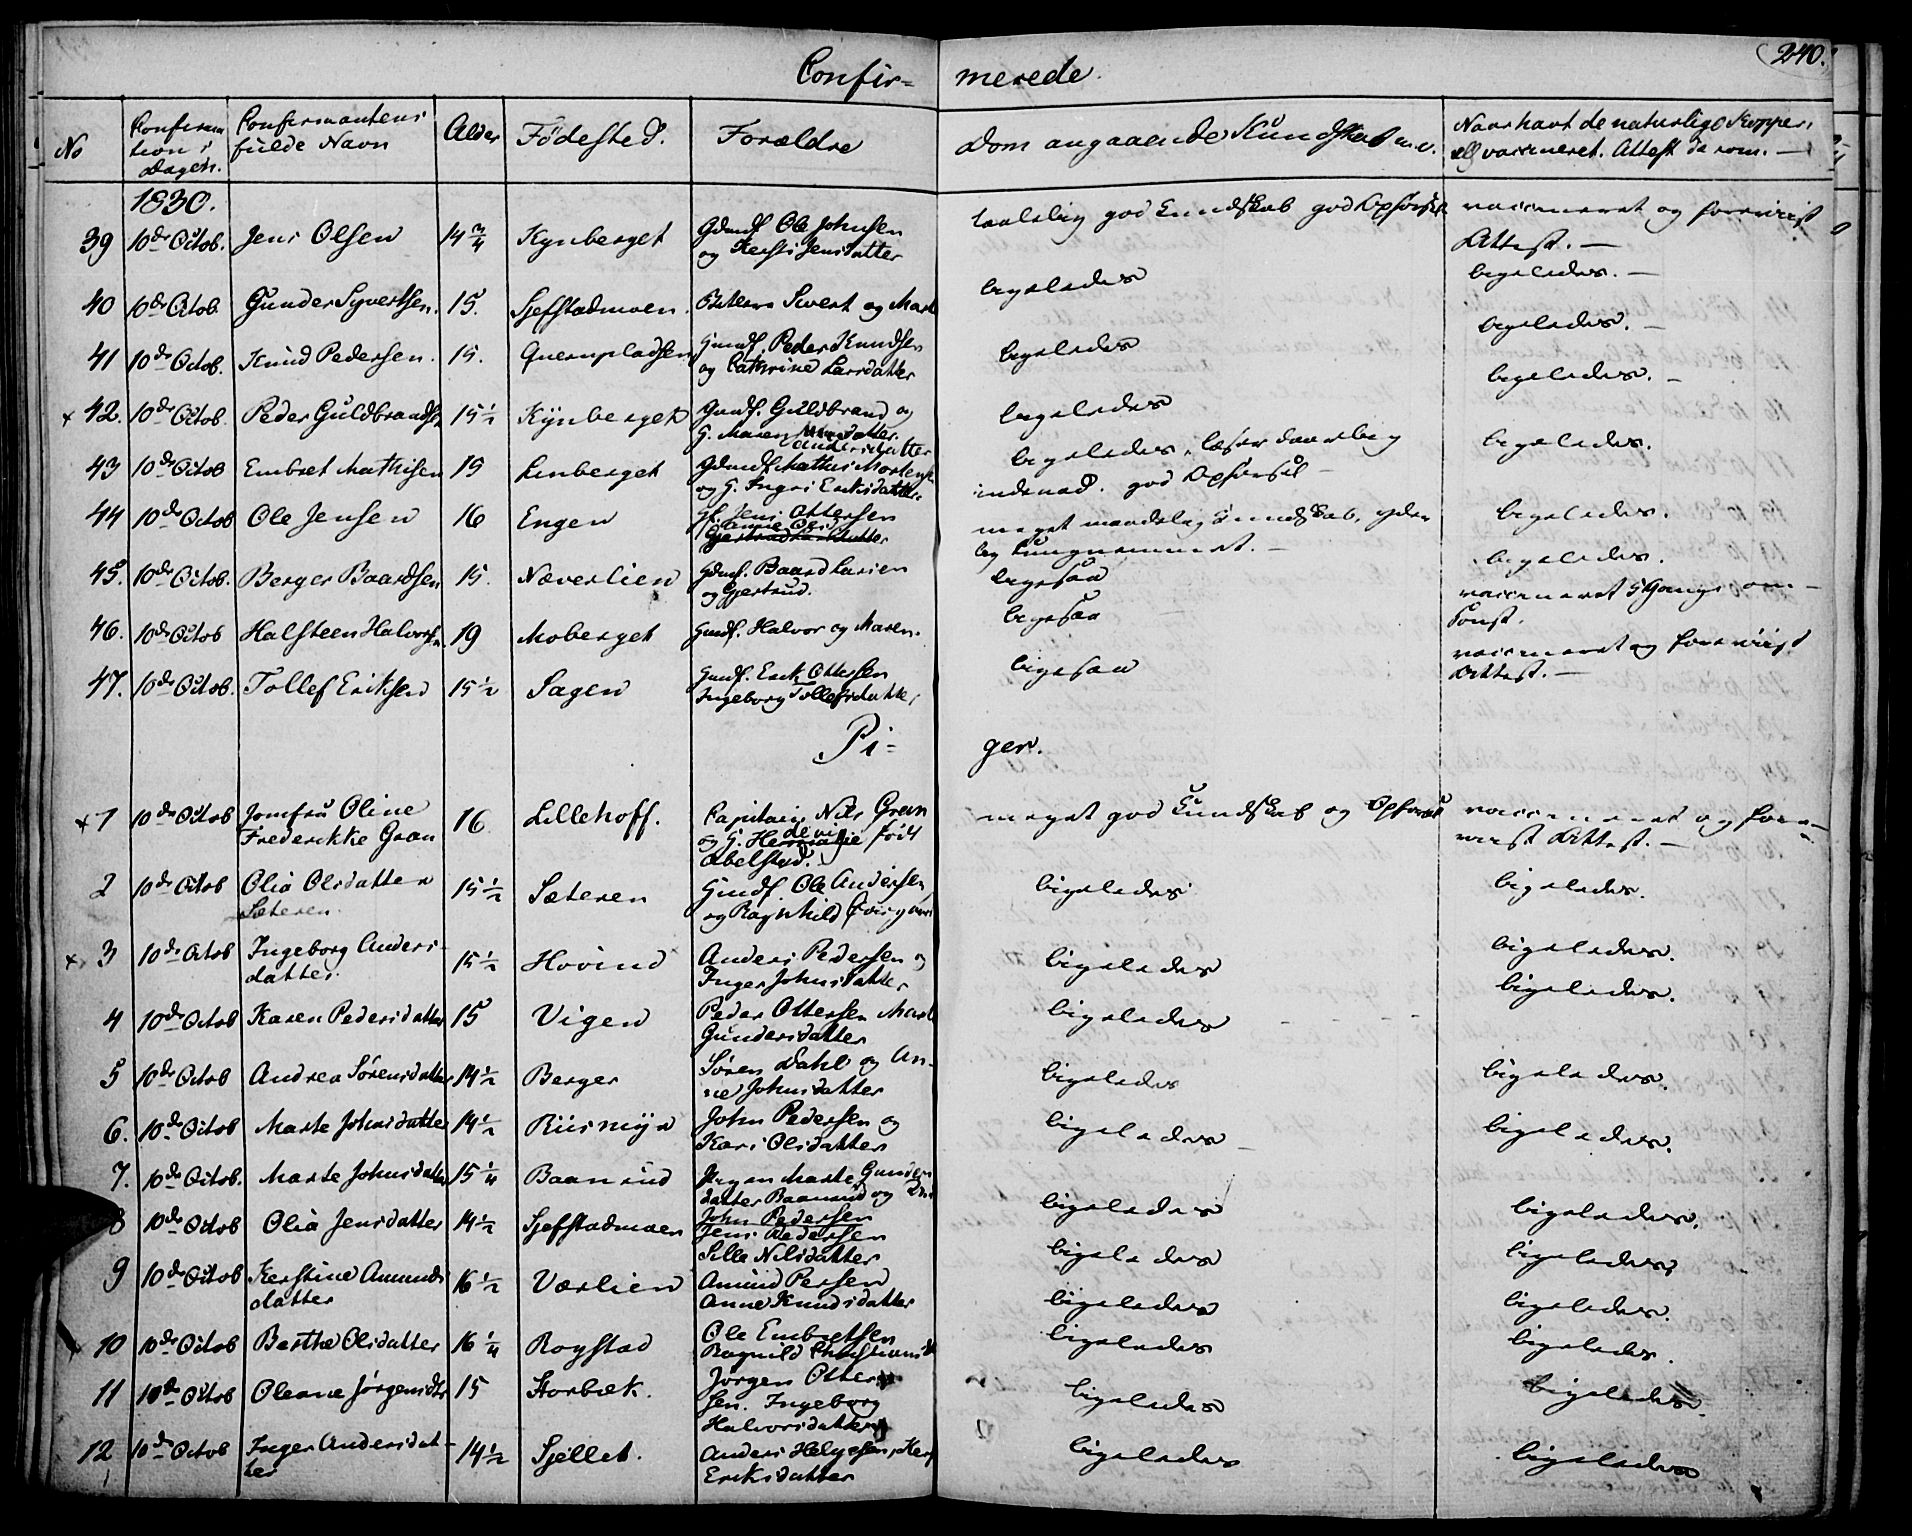 240.
Confir= merede.
No Confirmations Dagen. Confirmantens fulde Navn Alder Fødested. Forældre Dom angaaende Kundskab m.v. Naar havt de naturlige Kopper, ell. vaccineret. Attest derom. —
1830.
39 10de Octob. Jens Olsen 14 3/4 Kynberget Gdmd. Ole Johnsen og Kersti Jensdatter taalelig god Kundskab god Opførsel vaccineret og foreviist Attest. —
40 10de Octob. Gunder Syvertsen. 15. Sjefstadmoen. Sivert og Marte ligeledes ligeledes. —
41 10de Octob. Knud Pedersen. 15. Quernpladsen Gmdf. Peder Knudsen og Cathrine Larsdatter ligeledes ligeledes. —
x 42. 10de Octob. Peder Guldbrandsen 15 1/2 Kynberget Gmdf. Guldbrand og G. Maren Andersdatter ligeledes ligeledes. —
43 10de Octob Embret Mathisen 15 Linberget Gdmdf. Mathis Mortensen og G. Ingri Eriksdatter. ligeledes, læser daarlig indenad. god Opførsel ligeledes.
44 10de Octob Ole Jensen 16 Engen Gf. Jens Ottersen Anne Olsd meget maadelig Kundskab, yderlig tungnemmet. — ligeledes.
45. 10de Octob. Berger Baardsen 15. Næverlien Gdmf. Baard Larsen og Gjertrud. ligesaa ligeledes.
46. 10de Octob Halsteen Halvorsen 19 Moberget Gmdf. Halvor og Maren. ligesaa vaccineret 5 Gange omsonst.
47. 10de Octob. Tollef Eriksen 15 1/2 Sagen Gmdf. Erik Ottersen Ingeborg Tollefsdatter ligesaa vaccineret og foreviist Attest. —
Pi= ger.
x 1 10de Octob Jomfru Oline Frederikke Gran 16 Lillehoff. Capitain Nils Gran og G. Hedevig født Abelsted. meget god Kundskab og Opførsel vaccineret og foreviist Attest. —
2 10de Octob Olia Olsdatter Sæteren. 15 1/2 Sæteren Gmdf. Ole Andersen og Ragnhild ligeledes ligeledes.
x 3 10de Octob Ingeborg Andersdatter. 15 1/2 Hovind Anders Pedersen og Inger Johnsdatter ligeledes ligeledes.
4 10de Octob Karen Pedersdatter 15 Vigen Peder Ottersen Marte Gundersdatter ligeledes ligeledes.
5 10de Octob Andrea Sørensdatter 14 1/2 Berger Søren Dahl og Anne Johnsdatter ligeledes ligeledes.
6. 10de Octob Marte Johnsdatter 14 1/2 Riismyr John Pedersen og Kari Olsdatter ligeledes ligeledes.
7. 10de Octob. Marte Johnsdatter 15 1/4 Baanrud Pigen Marte Gundersdatter Baanrud og John Pedersen ligeledes ligeledes.
8 10de Octob Olia Jensdatter 14 1/2 Sjefstadmoen Jens Pedersen Sille Nilsdatter ligeledes ligeledes.
9 10de Octob Kerstine Amundsdatter 16 1/2 Værlien Amund Persen Anne Knudsdatter ligeledes ligeledes.
x 10 10de Octob Berthe Olsdatter 16 1/4 Rogstad Ole Embretsen Ragnild Christiansd ligeledes ligeledes.
11 10de Octob Oleane Jørgensdtr 15 Storbæk. Jørgen Ottersen. Ingeborg Halvorsdatter ligeledes ligeledes.
12 10de Octob Inger Andersdatter 14 1/2 Sjellet. Anders Helgesen, Kersti Eriksdatter ligeledes ligeledes